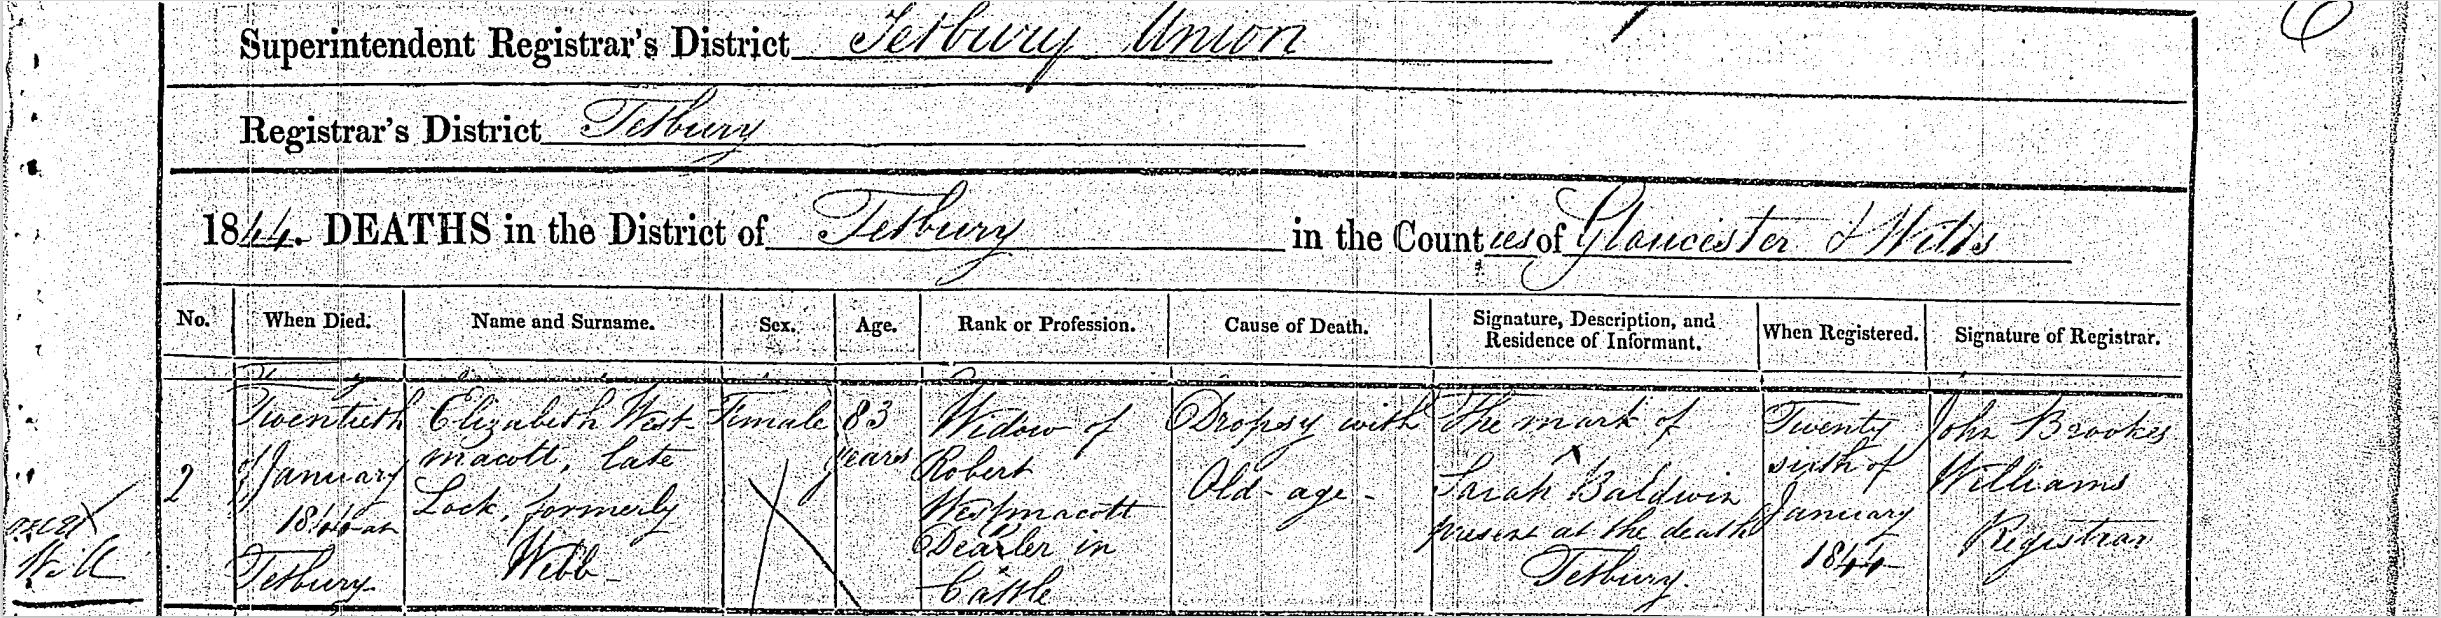 Superintendent Registrar's District Tetbury Union
Registrar's District Tetbury
1844. DEATHS in the District of Tetbury in the Counties of Gloucester & Wilts
No. When Died. Name and Surname. Sex. Age. Rank or Profession. Cause of Death. Signature, Description, and Residence of Informant. When Registered. Signature of Registrar.
2
Twentieth
of January
1844 at
Tetbury
Elizabeth West-
macott, late
Lock, formerly
Webb
Female
83
years
Widow of
Robert
Westmacott
Dealer in
Cattle
Dropsy with
Old-age-
The mark of
X
Sarah Baldwin
present at the death
Tetbury.
Twenty
sixth of
January
1844
John Brookes
Williams
Registrar
Will